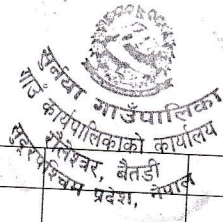 सुर्नया गाउँपालिका
गाउँ कार्यपालिकाको कार्यालय
शैलेश्वर, बैतडी
सुदूरपश्चिम प्रदेश, नेपाल